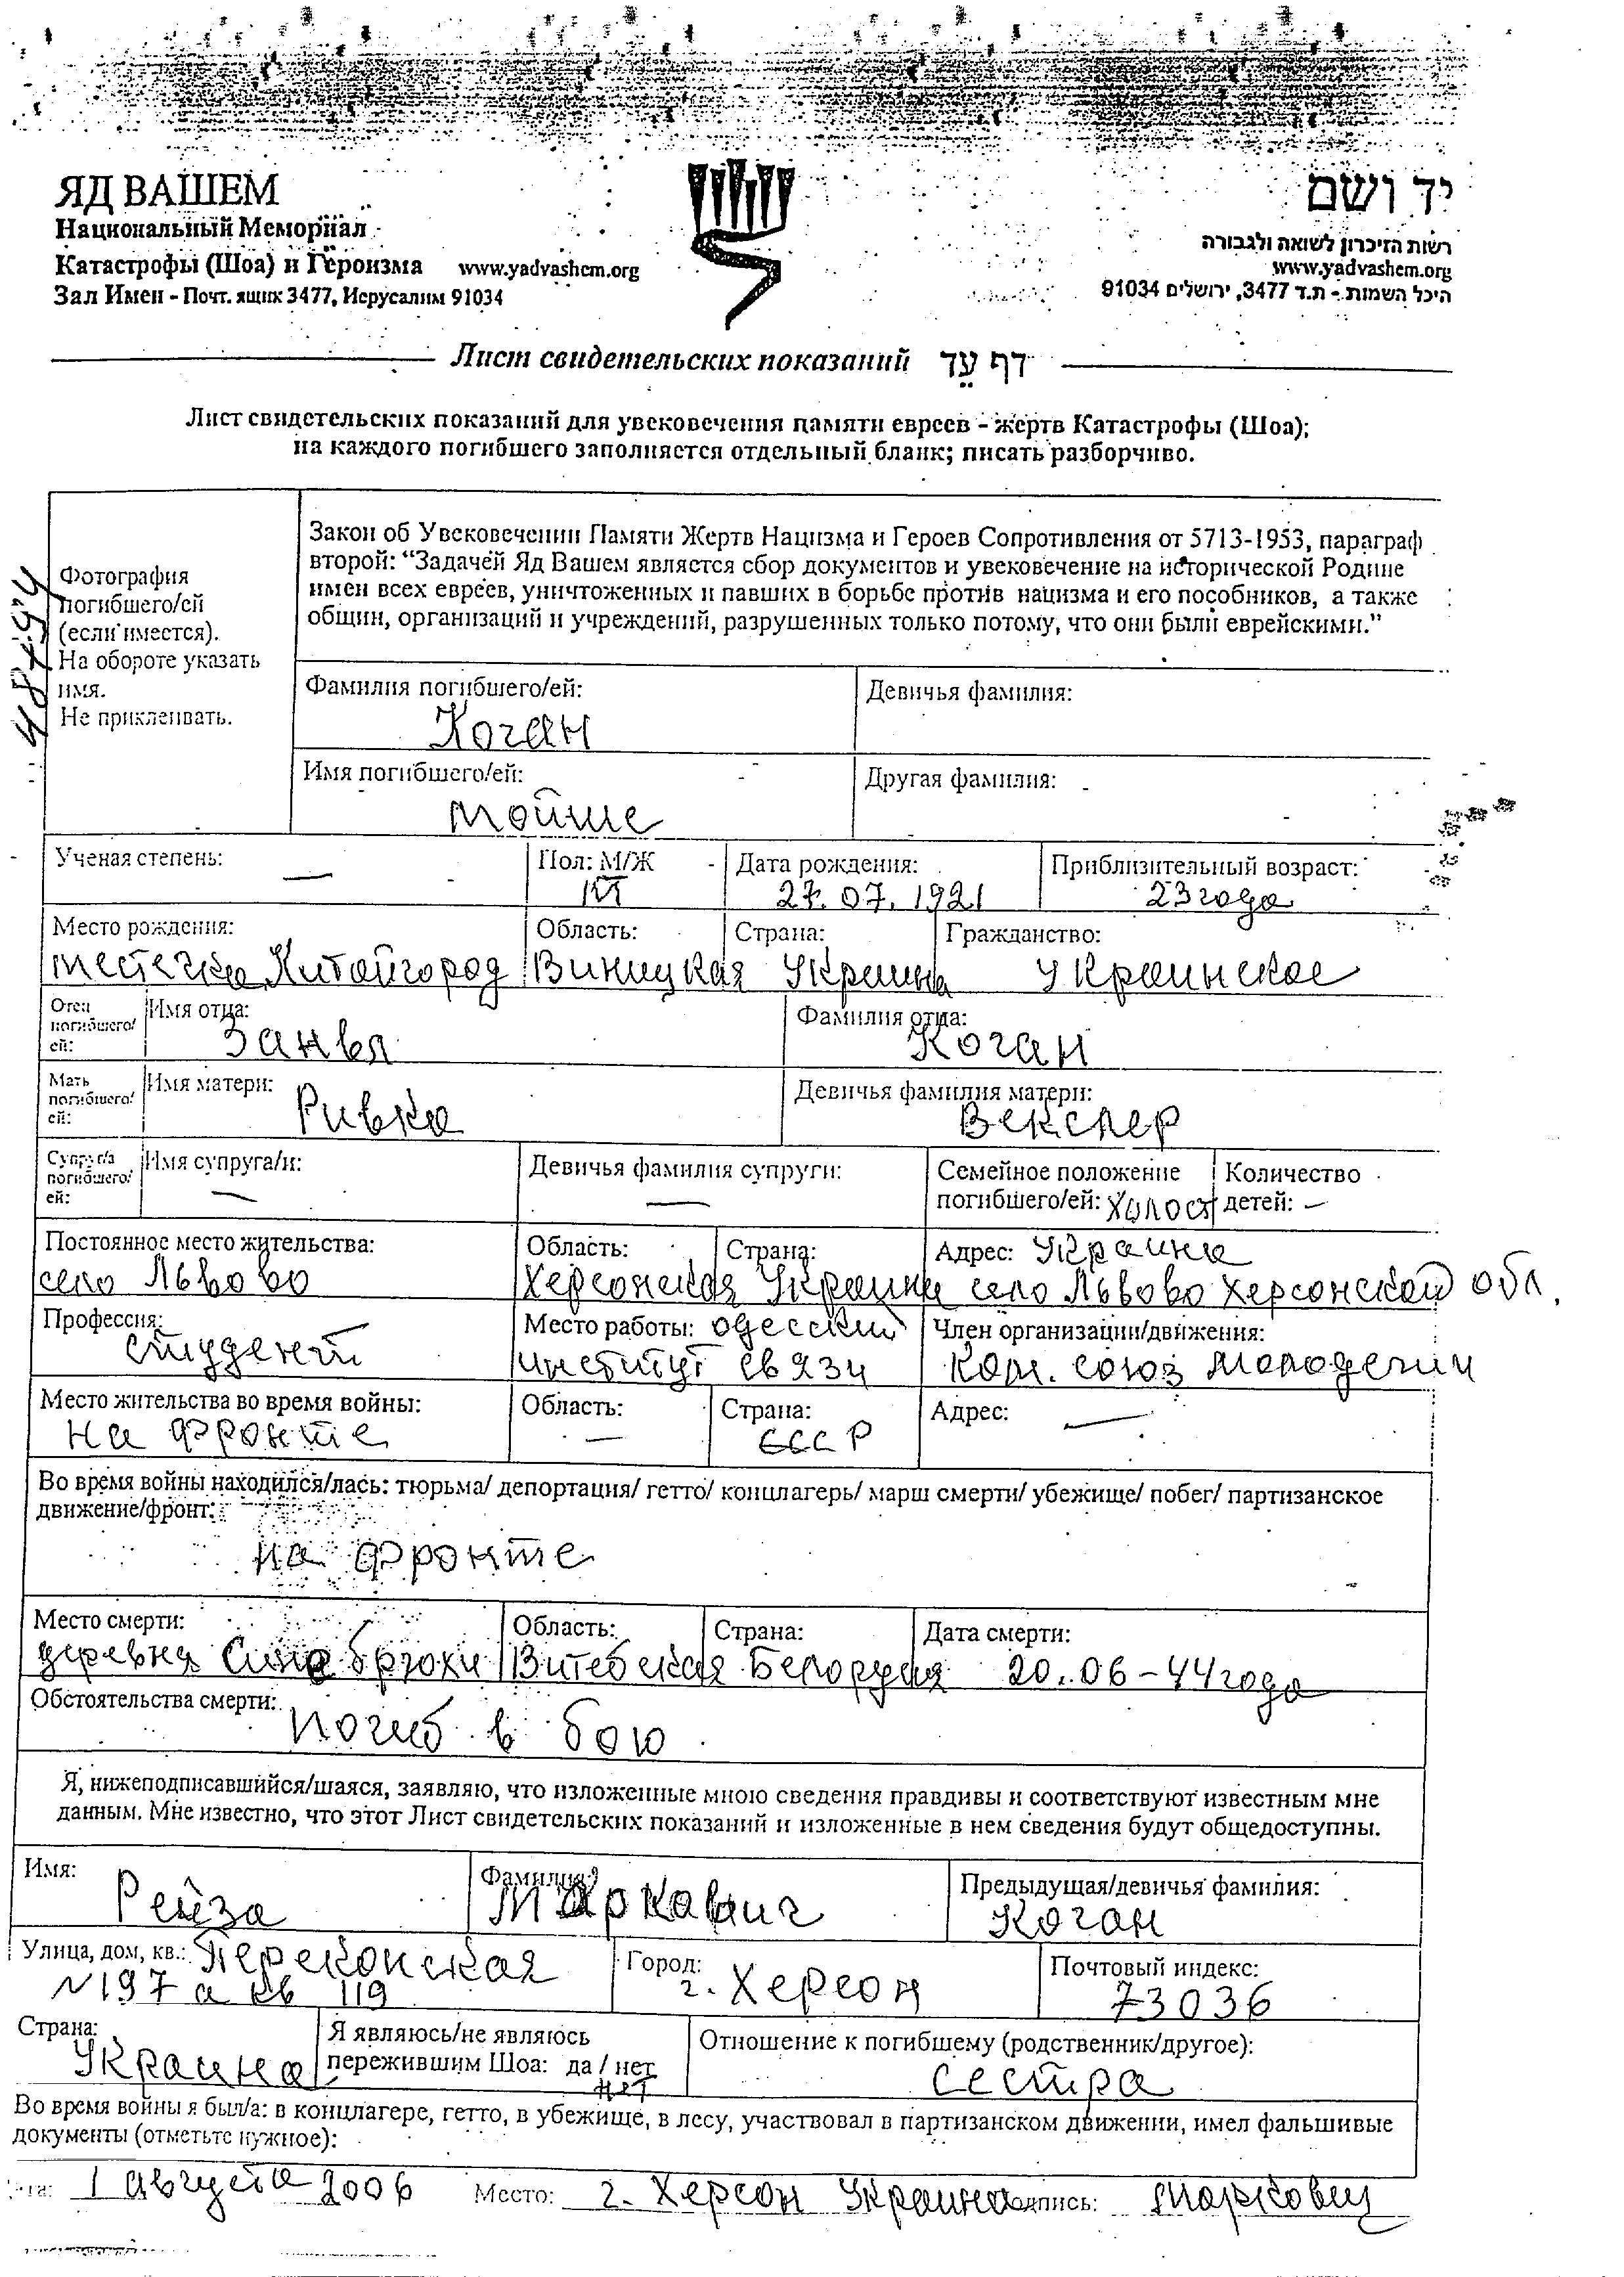 ЯД ВАШЕМ
Национальный Мемориал
Катастрофы (Шоа) и Героизма www.yadvashem.org
Зал Имен - Почт. ящик 3477, Иерусалим 91034
יד ושם
רשות הזיכרון לשואה ולגבורה
www.yadvashem.org
היכל השמות - ת.ד 3477, ירושלים 91034
Лист свидетельских показаний דף עֵד
Лист свидетельских показаний для увековечения памяти евреев - жертв Катастрофы (Шоа);
на каждого погибшего заполняется отдельный бланк; писать разборчиво.
Фотография
погибшего/ей
(если имеется).
На обороте указать
имя.
Не приклеивать.
Закон об Увековечении Памяти Жертв Нацизма и Героев Сопротивления от 5713-1953, параграф
второй: “Задачей Яд Вашем является сбор документов и увековечение на исторической Родине
имен всех евреев, уничтоженных и павших в борьбе против нацизма и его пособников, а также
общин, организаций и учреждений, разрушенных только потому, что они были еврейскими.”
Фамилия погибшего/ей: Девичья фамилия:
Коган
Имя погибшего/ей: Другая фамилия:
Мойше
Ученая степень: Пол: М/Ж Дата рождения: Приблизительный возраст:
— М 27.07.1921 23 года
Место рождения: Область: Страна: Гражданство:
местечко Китайгород Виницкая Украина Украинское
Отец погибшего/ей: Имя отца: Фамилия отца:
Занвл Коган
Мать погибшего/ей: Имя матери: Девичья фамилия матери:
Ривка Векслер
Супруг/а погибшего/ей: Имя супруга/и: Девичья фамилия супруги: Семейное положение Количество
— — погибшего/ей: холост детей: —
Постоянное место жительства: Область: Страна: Адрес: Украина
село Львово Херсонская Украина село Львово Херсонской обл.
Профессия: Место работы: одесский Член организации/движения:
студент институт связи Ком. союз молодежи
Место жительства во время войны: Область: Страна: Адрес: —
на фронте — СССР
Во время войны находился/лась: тюрьма/ депортация/ гетто/ концлагерь/ марш смерти/ убежище/ побег/ партизанское
движение/фронт:
на фронте
Место смерти: Область: Страна: Дата смерти:
деревня Синебрюхи Витебская Белорусия 20.06-44 года
Обстоятельства смерти: Погиб в бою
Я, нижеподписавшийся/шаяся, заявляю, что изложенные мною сведения правдивы и соответствуют известным мне
данным. Мне известно, что этот Лист свидетельских показаний и изложенные в нем сведения будут общедоступны.
Имя: Фамилия: Предыдущая/девичья фамилия:
Рейза Маркович Коган
Улица, дом, кв.: Перекопская Город: Почтовый индекс:
№197 а кв 119 г. Херсон 73036
Страна: Я являюсь/не являюсь Отношение к погибшему (родственник/другое):
Украина пережившим Шоа: да / нет сестра
нет
Во время войны я был/а: в концлагере, гетто, в убежище, в лесу, участвовал в партизанском движении, имел фальшивые
документы (отметьте нужное):
1 августа 2006 Место: г. Херсон Украина подпись: Маркович